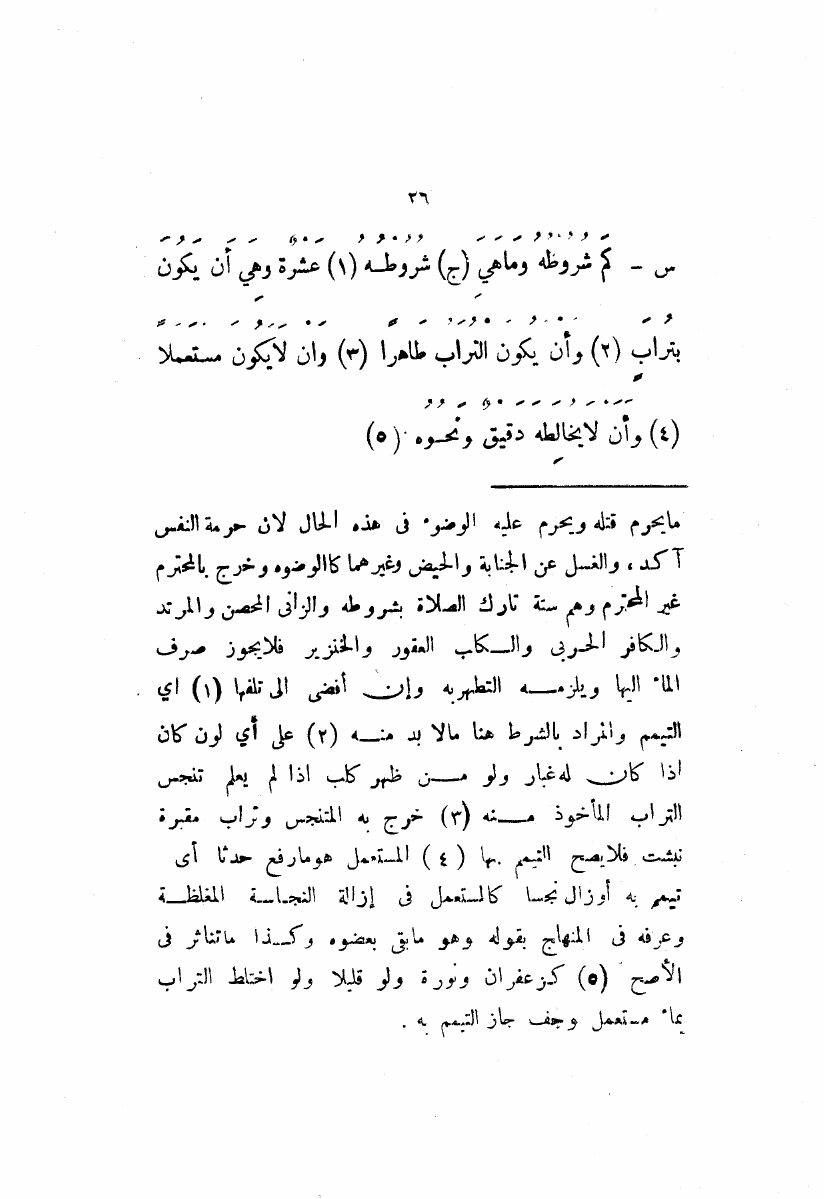 ٣٦
س - كم شروطه وماهي (ج) شروطه (١) عشرة وهي أن يكون
بتراب (٢) وأن يكون التراب طاهرا (٣) وان لايكون مستعملا
(٤) وأن لايخالطه دقيق ونحوه (٥)
مايحرم قتله ويحرم عليه الوضوء فى هذه الحال لان حرمة النفس
آكد، والغسل عن الجنابة والحيض وغيرهما كالوضوء وخرج بالمحترم
غير المحترم وهم ستة تارك الصلاة بشروطه والزانى المحصن والمرتد
والكافر الحربى والكاب العقور والخنزير فلايجوز صرف
الماء اليها ويلزمه التطهربه وإن أفضى الى تلفها (١) اي
التيمم والمراد بالشرط هنا مالا بد منه (٢) على أي لون كان
اذا كان له غبار ولو من ظهر كلب اذا لم يعلم تنجس
التراب المأخوذ منه (٣) خرج به المتنجس وتراب مقبرة
نبشت فلايصح التيمم بها (٤) المستعمل هومارفع حدثا أى
تيمم به أوزال نجسا كالمستعمل فى إزالة النجاسة المغلظة
وعرفه فى المنهاج بقوله وهو مابقى بعضوه وكذا ماتناثر فى
الأصح (٥) كزعفران ونورة ولو قليلا ولو اختاط التراب
بماء مستعمل وجف جاز التيمم به .